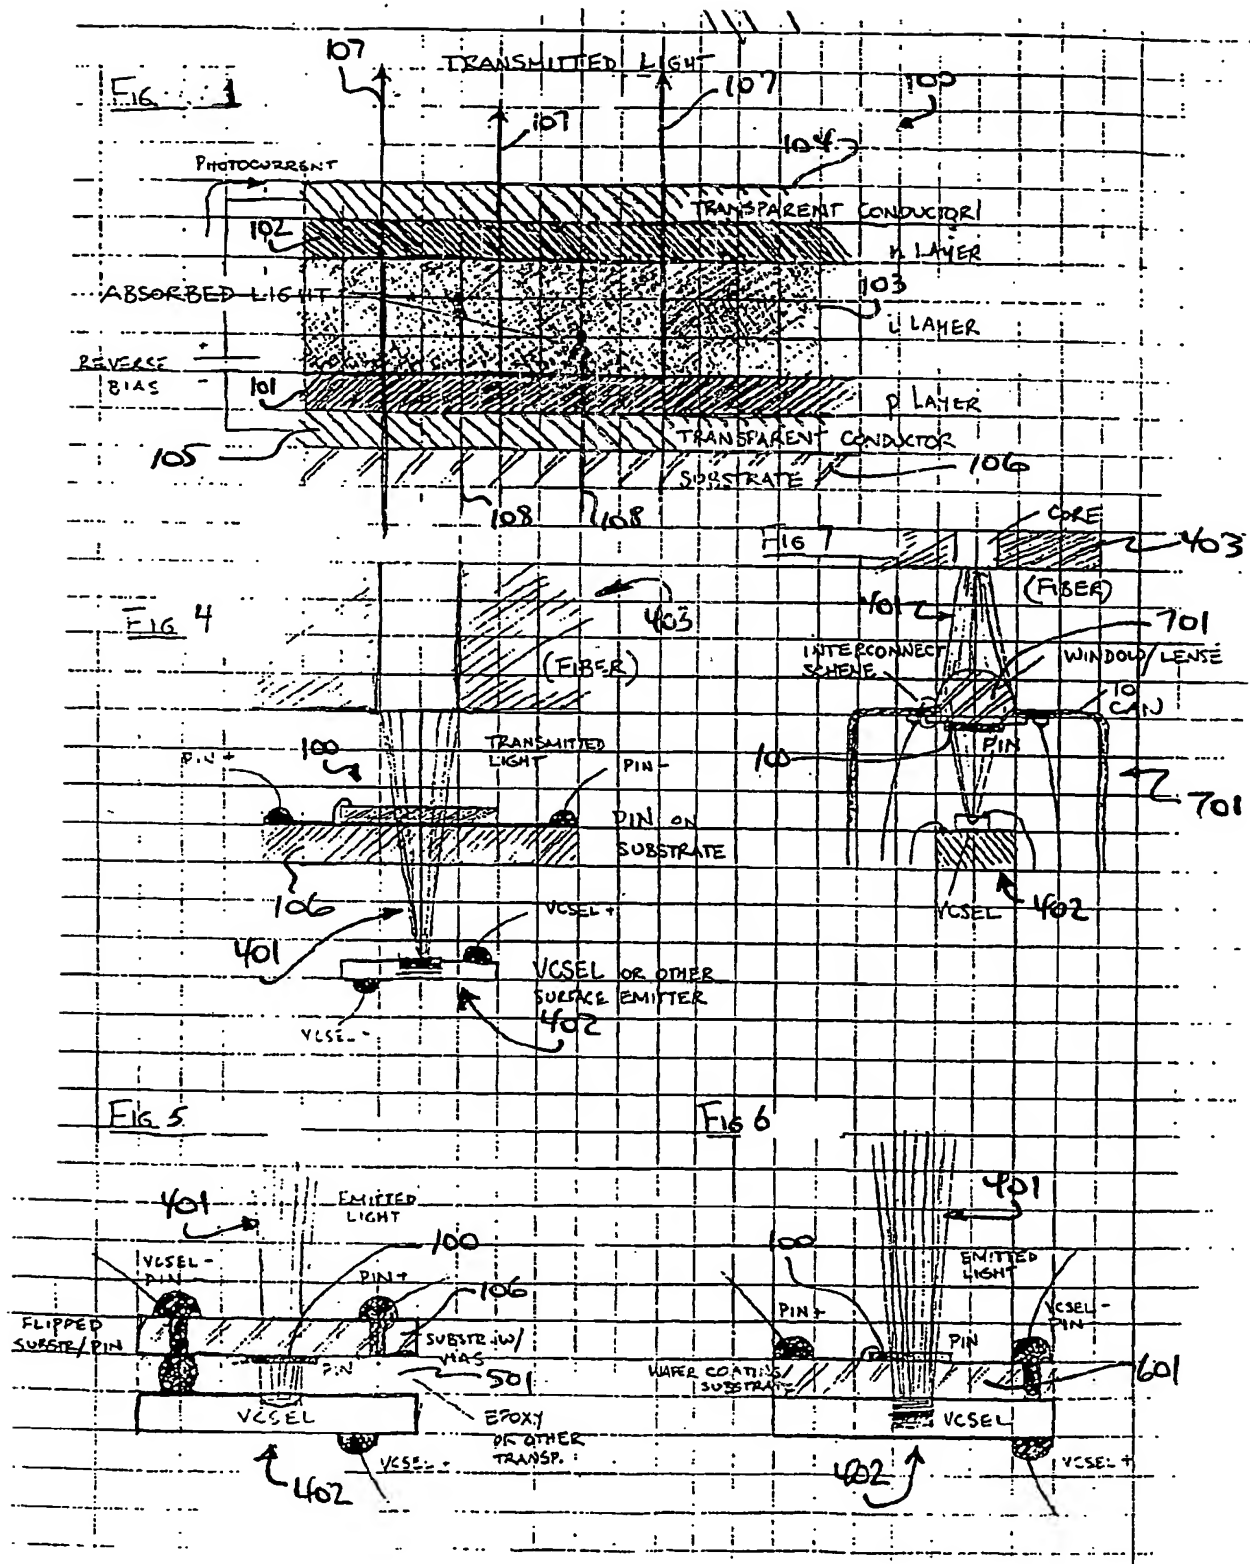 107
TRANSMITTED LIGHT
FIG 1
107
100
107
104
PHOTOCURRENT
TRANSPARENT CONDUCTOR
102
n LAYER
ABSORBED LIGHT
103
i LAYER
+
REVERSE
BIAS
-
101
p LAYER
TRANSPARENT CONDUCTOR
105
106
SUBSTRATE
108
108
FIG 7
CORE
403
(FIBER)
401
701
INTERCONNECT
SCHEME
WINDOW/LENSE
TO
CAN
PIN
100
701
VCSEL
402
FIG 4
403
(FIBER)
100
TRANSMITTED
LIGHT
PIN+
PIN-
PIN ON
SUBSTRATE
106
VCSEL+
401
VCSEL OR OTHER
SURFACE EMITTER
402
VCSEL-
FIG 5
401
EMITTED
LIGHT
100
VCSEL-
PIN-
PIN+
106
FLIPPED
SUBSTR/PIN
SUBSTR W/
VIAS
PIN
501
VCSEL
EPOXY
OR OTHER
TRANSP.
VCSEL+
402
FIG 6
401
100
EMITTED
LIGHT
PIN+
VCSEL-
PIN
PIN
WAFER COATING/
SUBSTRATE
601
VCSEL
402
VCSEL+